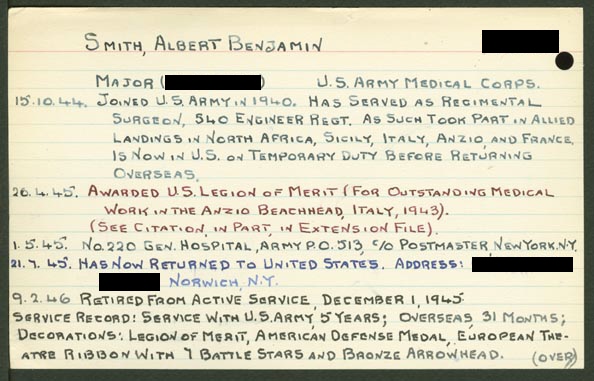 SMITH, ALBERT BENJAMIN
MAJOR ( ) U.S. ARMY MEDICAL CORPS.
15.10.44. JOINED U.S. ARMY IN 1940. HAS SERVED AS REGIMENTAL
SURGEON, 540 ENGINEER REGT. AS SUCH TOOK PART IN ALLIED
LANDINGS IN NORTH AFRICA, SICILY, ITALY, ANZIO, AND FRANCE.
IS NOW IN U.S. ON TEMPORARY DUTY BEFORE RETURNING
OVERSEAS.
26.4.45. AWARDED U.S. LEGION OF MERIT (FOR OUTSTANDING MEDICAL
WORK IN THE ANZIO BEACHHEAD, ITALY, 1943).
(SEE CITATION, IN PART, IN EXTENSION FILE).
1.5.45. NO. 220 GEN. HOSPITAL, ARMY P.O. 513, C/O POSTMASTER, NEW YORK. N.Y.
21.7.45. HAS NOW RETURNED TO UNITED STATES. ADDRESS:
NORWICH, N.Y.
9.2.46 RETIRED FROM ACTIVE SERVICE, DECEMBER 1, 1945.
SERVICE RECORD: SERVICE WITH U.S. ARMY, 5 YEARS; OVERSEAS, 31 MONTHS;
DECORATIONS: LEGION OF MERIT, AMERICAN DEFENSE MEDAL, EUROPEAN THE-
ATRE RIBBON WITH 7 BATTLE STARS AND BRONZE ARROWHEAD.
(OVER)